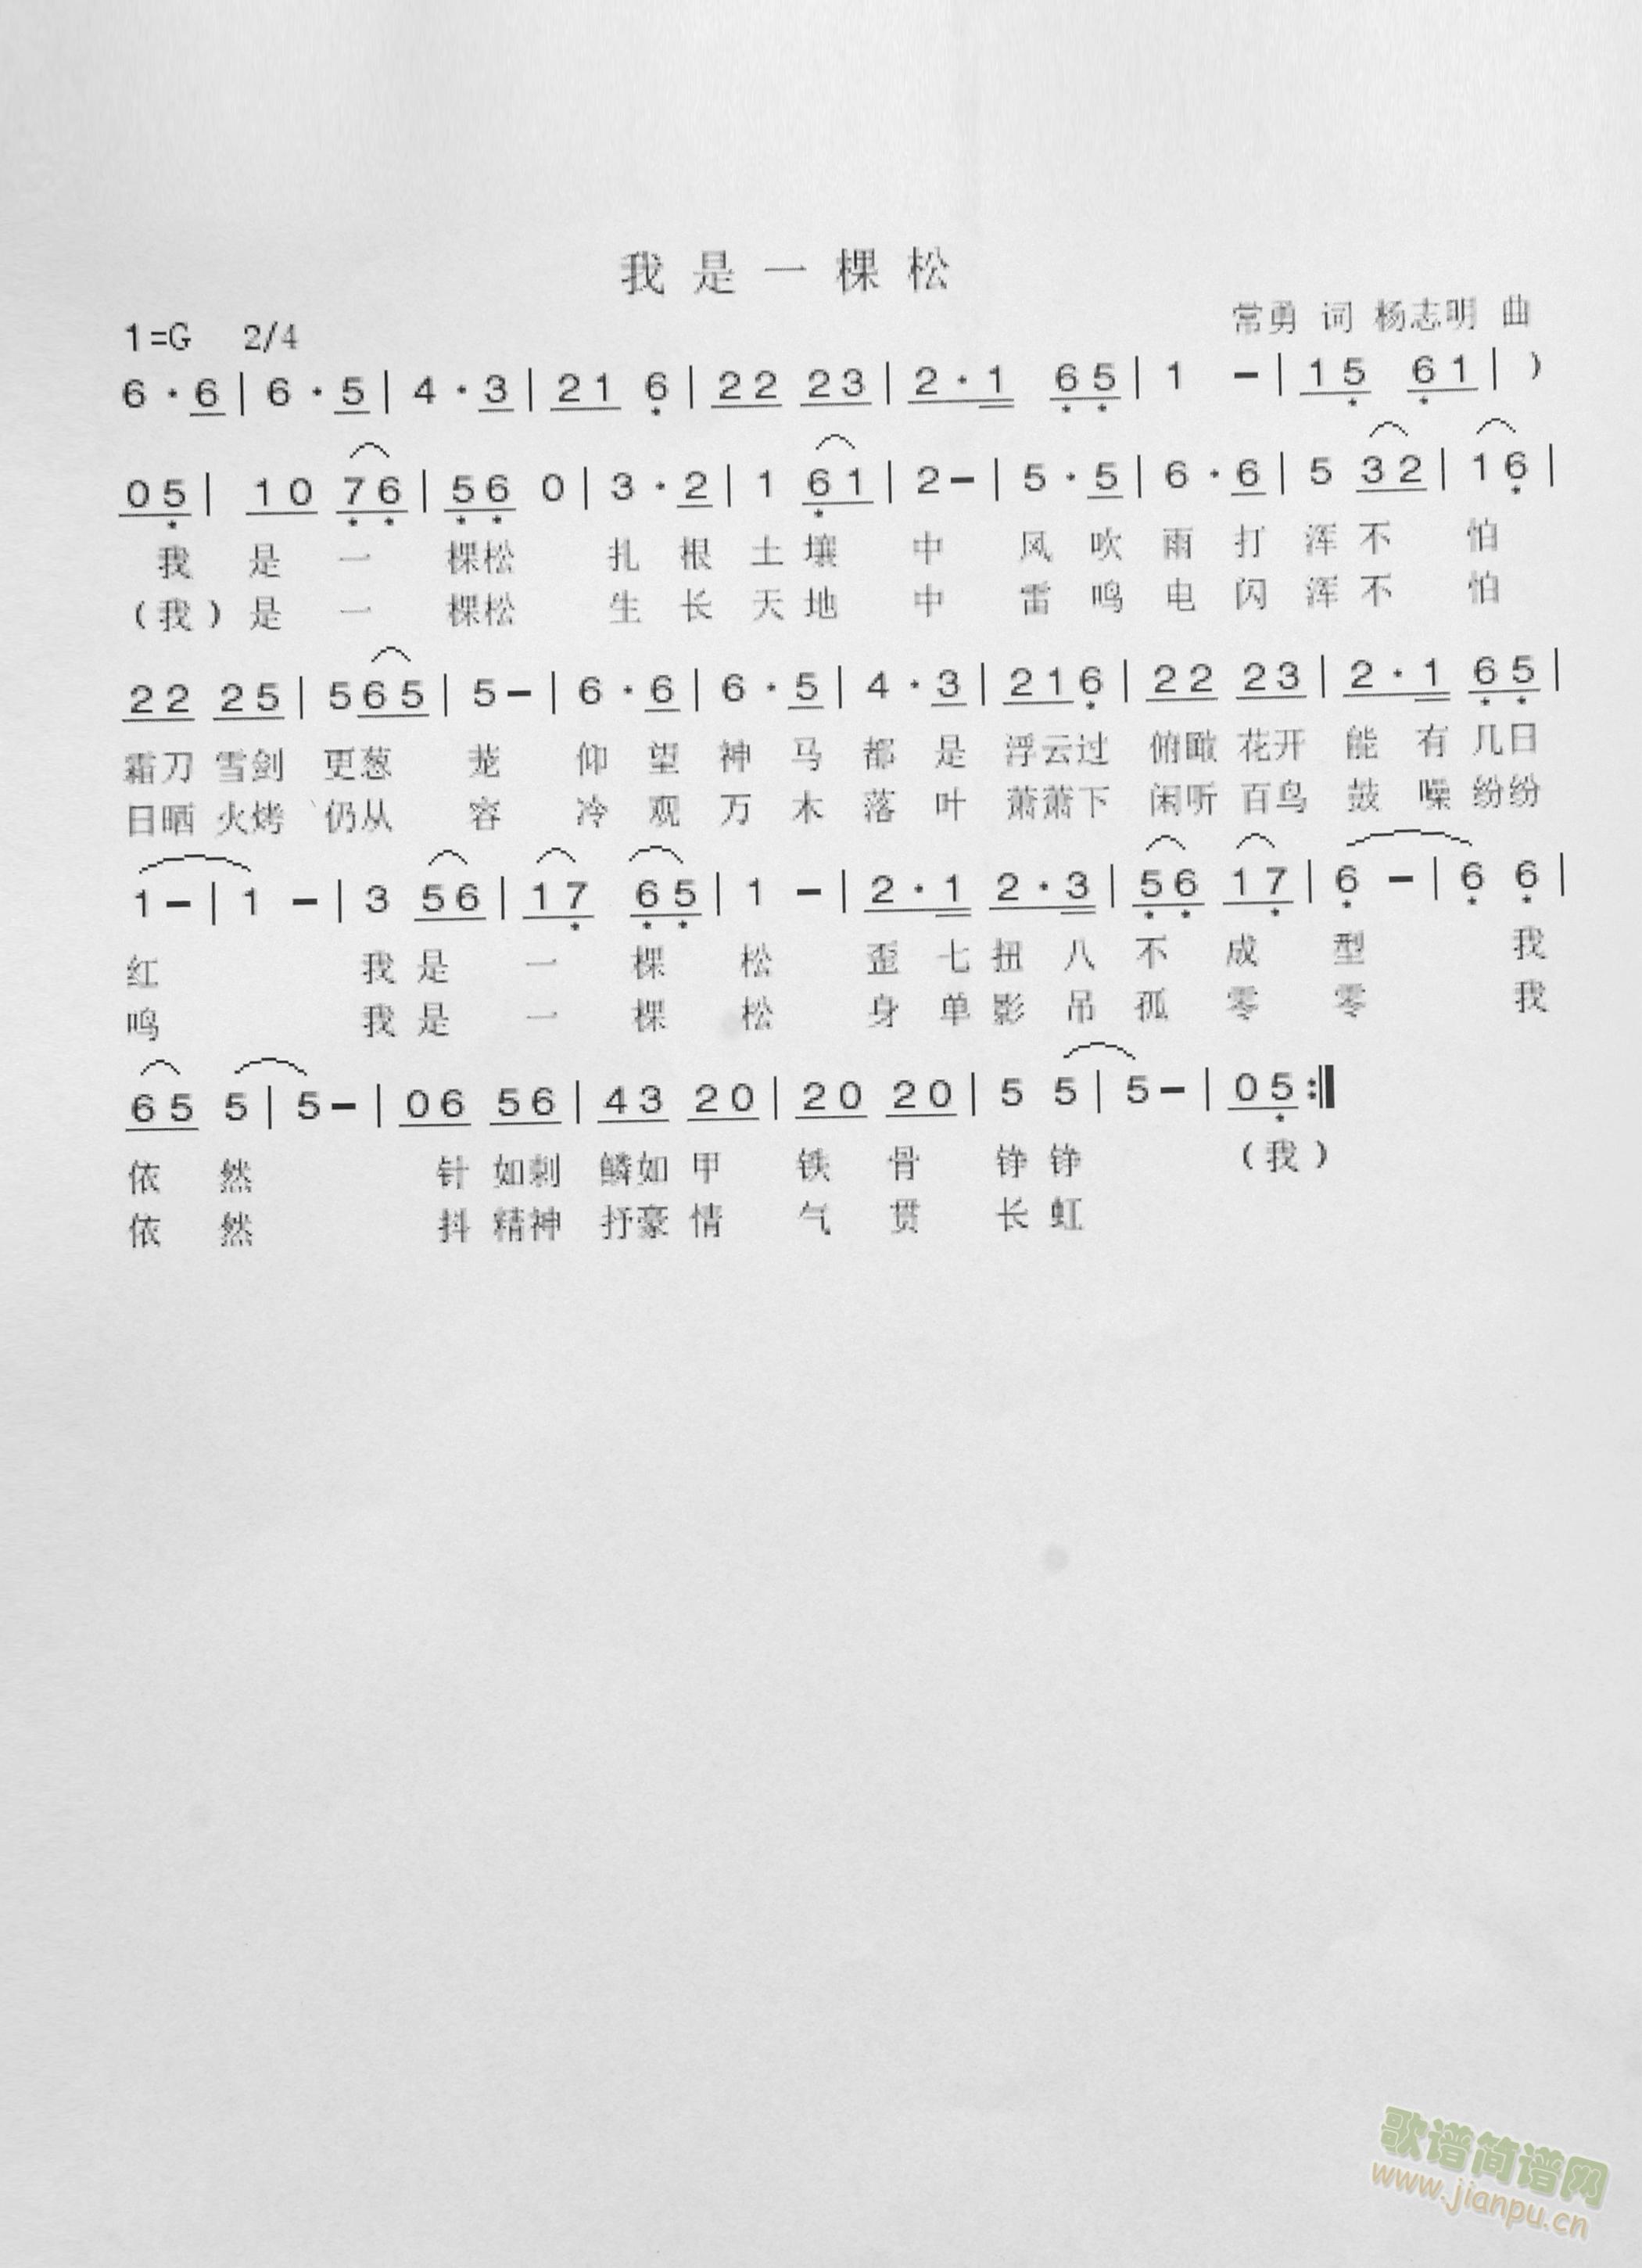 我是一棵松
1=G 2/4 常勇 词 杨志明 曲
6 · 6 | 6 · 5 | 4 · 3 | 21 6 | 22 23 | 2 · 1 65 | 1 - | 15 61 | )
05 | 10 76 | 56 0 | 3 · 2 | 1 61 | 2 - | 5 · 5 | 6 · 6 | 5 32 | 1 6 |
我 是 一 棵松 扎 根 土 壤 中 风 吹 雨 打 浑 不 怕
(我) 是 一 棵松 生 长 天 地 中 雷 鸣 电 闪 浑 不 怕
22 25 | 5 65 | 5 - | 6 · 6 | 6 · 5 | 4 · 3 | 21 6 | 22 23 | 2 · 1 65 |
霜刀 雪剑 更葱 茏 仰 望 神 马 都 是 浮云过 俯瞰 花开 能 有 几日
日晒 火烤 仍从 容 冷 观 万 木 落 叶 萧萧下 闲听 百鸟 鼓 噪 纷纷
1 - | 1 - | 3 56 | 17 65 | 1 - | 2 · 1 2 · 3 | 56 17 | 6 - | 6 6 |
红 我 是 一 棵 松 歪 七 扭 八 不 成 型 我
鸣 我 是 一 棵 松 身 单 影 吊 孤 零 零 我
65 5 | 5 - | 06 56 | 43 20 | 20 20 | 5 5 | 5 - | 05 :|
依 然 针 如刺 鳞如 甲 铁 骨 铮 铮 (我)
依 然 抖 精神 抒豪 情 气 贯 长 虹
歌谱简谱网
www.jianpu.cn